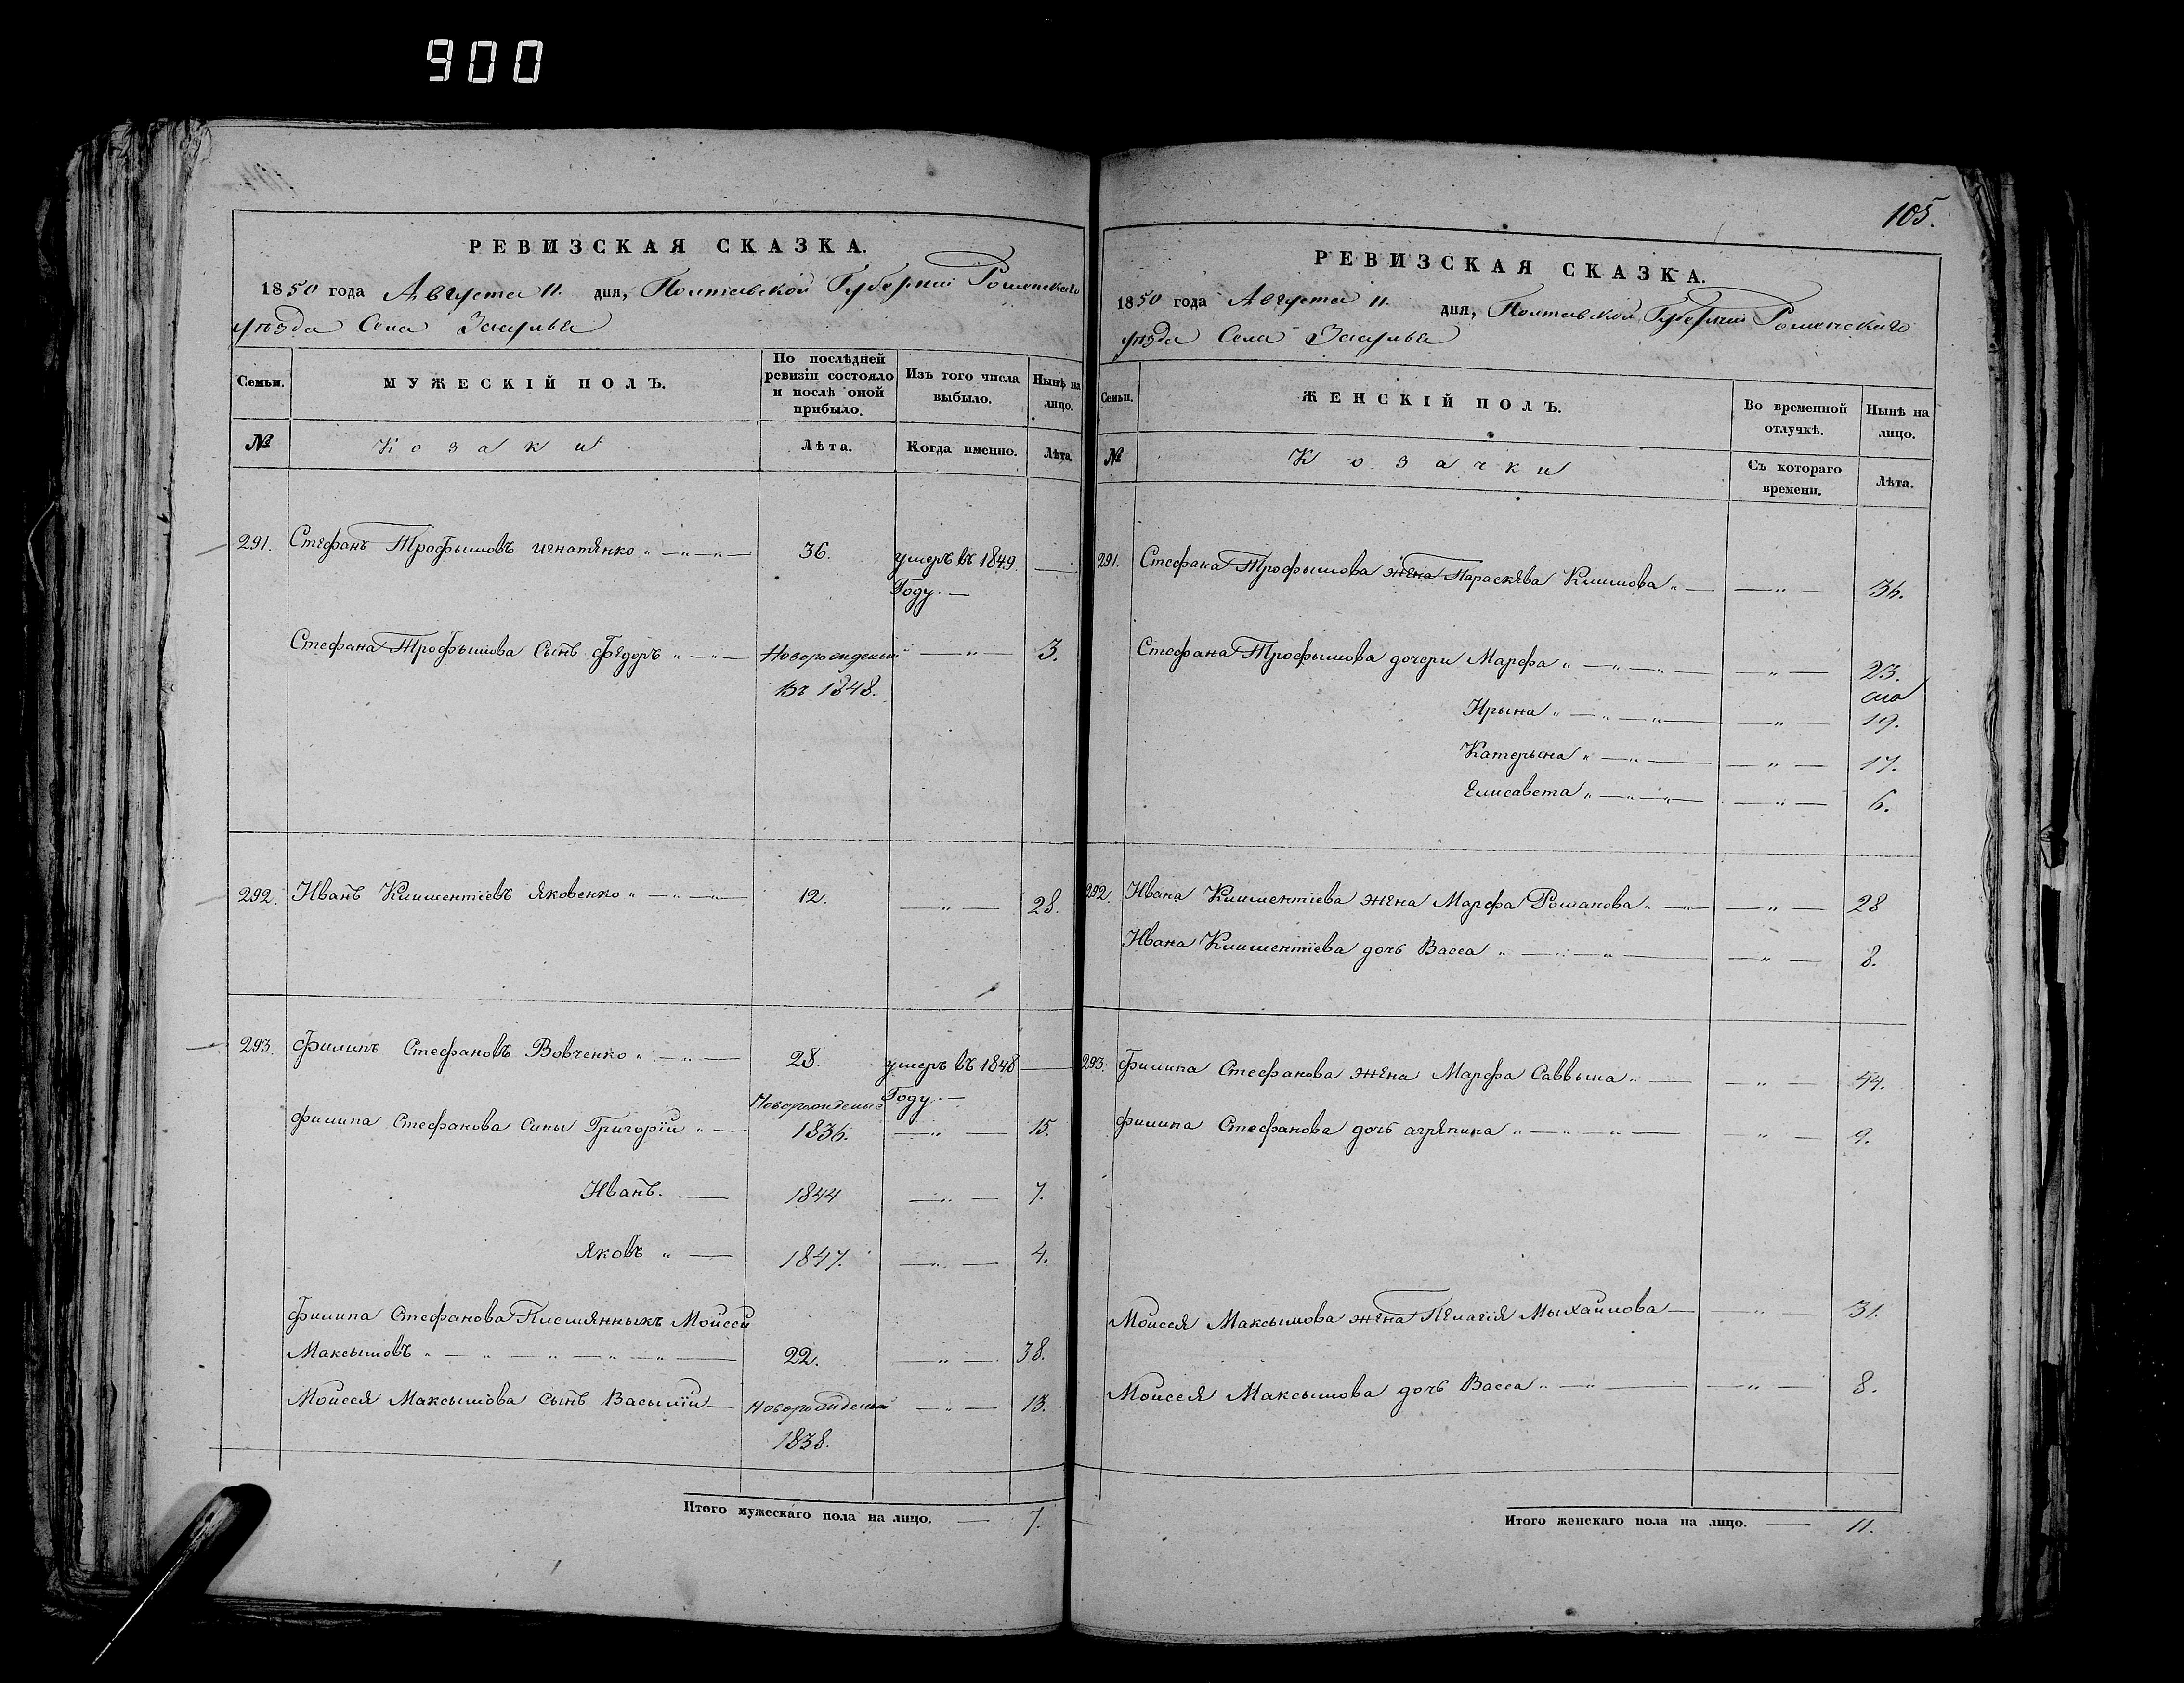 900
РЕВИЗСКАЯ СКАЗКА.
1850 года Августа 11. дня, Полтавской Губернии Роменского
уѣзда Села Засулья
Семьи.
МУЖЕСКІЙ ПОЛЪ.
По послѣдней
ревизіи состояло
и послѣ оной
прибыло.
Изъ того числа
выбыло.
Нынѣ на
лицо.
№
Козаки
Лѣта.
Когда именно.
Лѣта.
291. Стефанъ Трофымовъ Игнатянко „ — „ — „ — 36. умеръ въ 1849 —
Году. —
Стефана Трофымова Сынъ Федоръ „ — „ — Новорожденый — „ — 3.
въ 1848.
292. Иванъ Климентіевъ Яковенко „ — „ — „ — 12. — „ — 28.
293. Филипъ Стефановъ Вовченко „ — „ — 28. умеръ въ 1848 —
Новорожденые Году. —
Филипа Стефанова Сины Григорій „ — 1836. — „ — 15.
Иванъ. — 1844 — „ — 7.
Яковъ „ — 1847. — „ — 4.
Филипа Стефанова Племянныкъ Моисей
Максымовъ „ — „ — „ — „ — „ — 22. — „ — 38.
Моисея Максымова сынъ Васылій — Новорожденый — „ — 13.
1838.
Итого мужескаго пола на лицо. — 7.
105.
РЕВИЗСКАЯ СКАЗКА.
1850 года Августа 11. дня, Полтавской Губернии Роменского
уѣзда Села Засулья
Семьи.
ЖЕНСКІЙ ПОЛЪ.
Во временной
отлучкѣ.
Нынѣ на
лицо.
№
Козачки
Съ котораго
времени.
Лѣта.
291. Стефана Трофымова жена Параскява Климова „ — — „ — 36.
Стефана Трофымова дочери Марфа „ — „ — „ — — „ — 23.
Ирына „ — „ — „ — — „ — 19.
Катерына „ — „ — — „ — 17.
Елисавета „ — „ — „ — — „ — 6.
292. Ивана Климентіева жена Марфа Романова „ — — „ — 28
Ивана Климентіева дочь Васса „ — „ — „ — — „ — 8.
293. Филипа Стефанова жена Марфа Саввына „ — — „ — 44.
Филипа Стефанова дочь агряпина „ — „ — „ — — „ — 9.
Моисея Максымова жена Пелагія Мыхайлова — — „ — 31.
Моисея Максымова дочь Васса „ — „ — — „ — 8.
Итого женскаго пола на лицо. — 11.